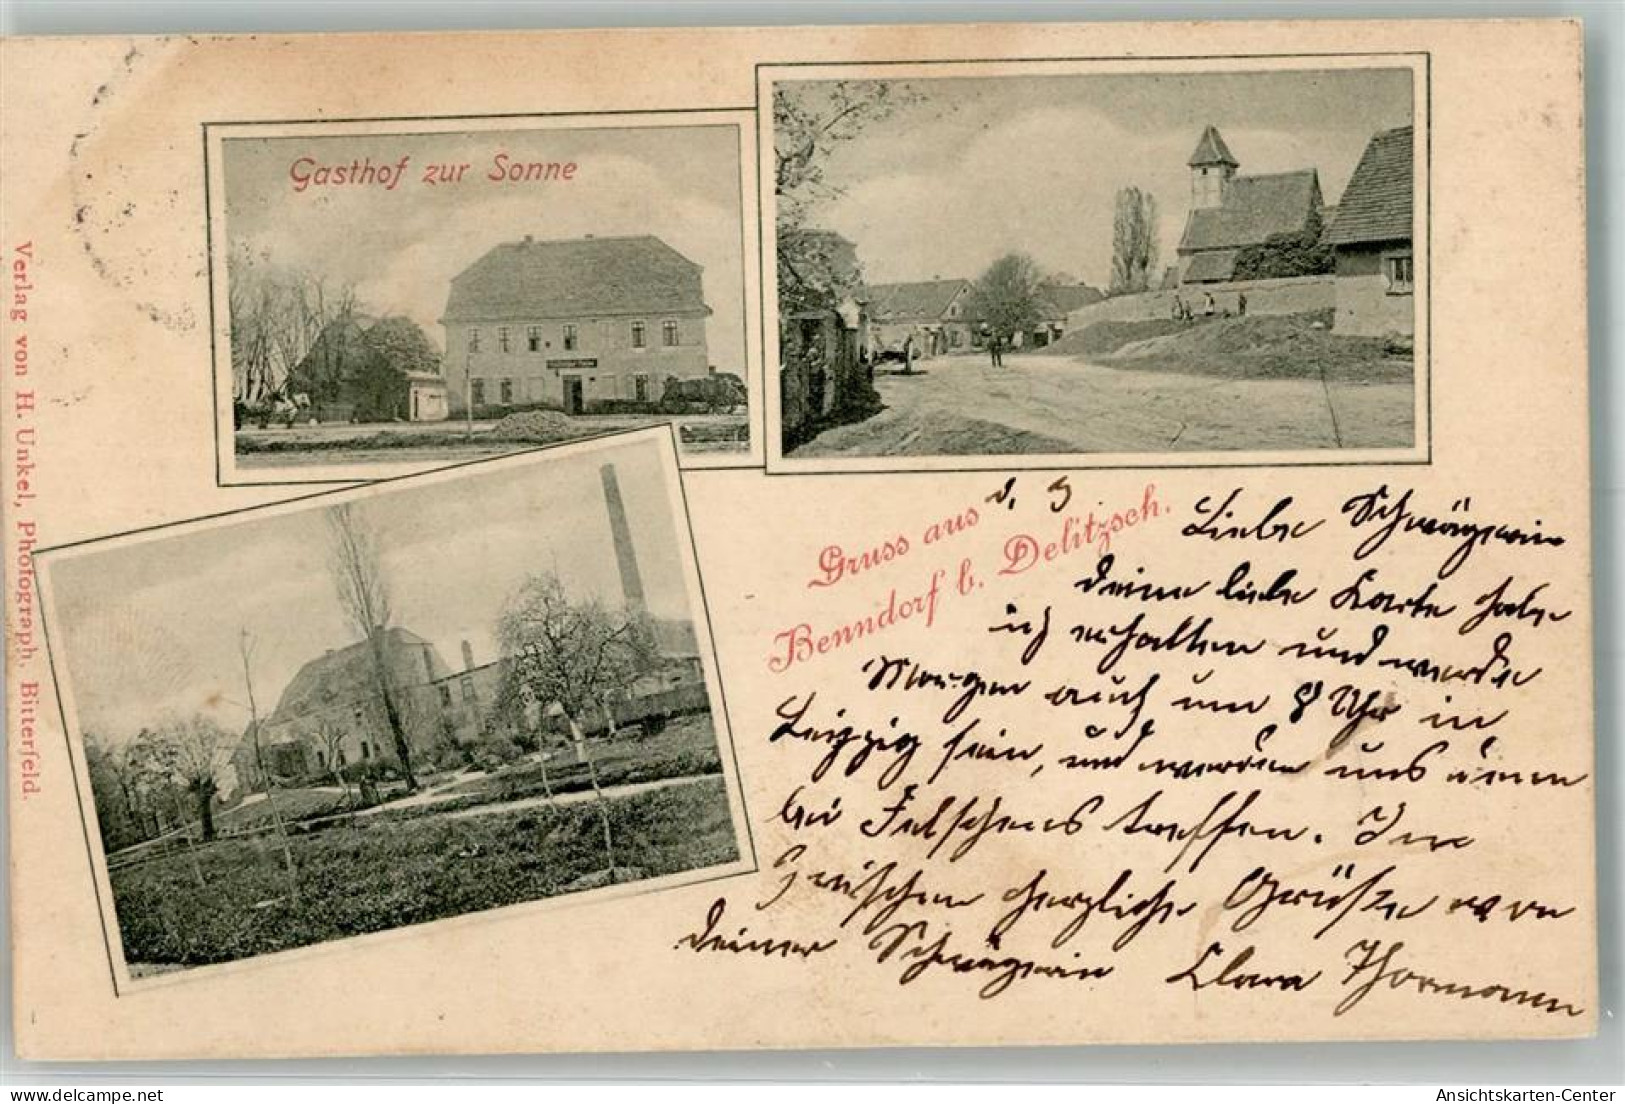 Gasthof zur Sonne
Verlag von H. Unkel, Photograph, Bitterfeld.
Gruss aus
Benndorf b. Delitzsch.
d. 9
Liebe Schwägerin
deine liebe Karte habe
ich erhalten und werde
Morgen auch um 8 Uhr in
Leipzig sein, und werden uns
bei treffen.
zwischen herzliche Grüße von
deiner Schwägerin Clara Thormann
Ansichtskarten-Center